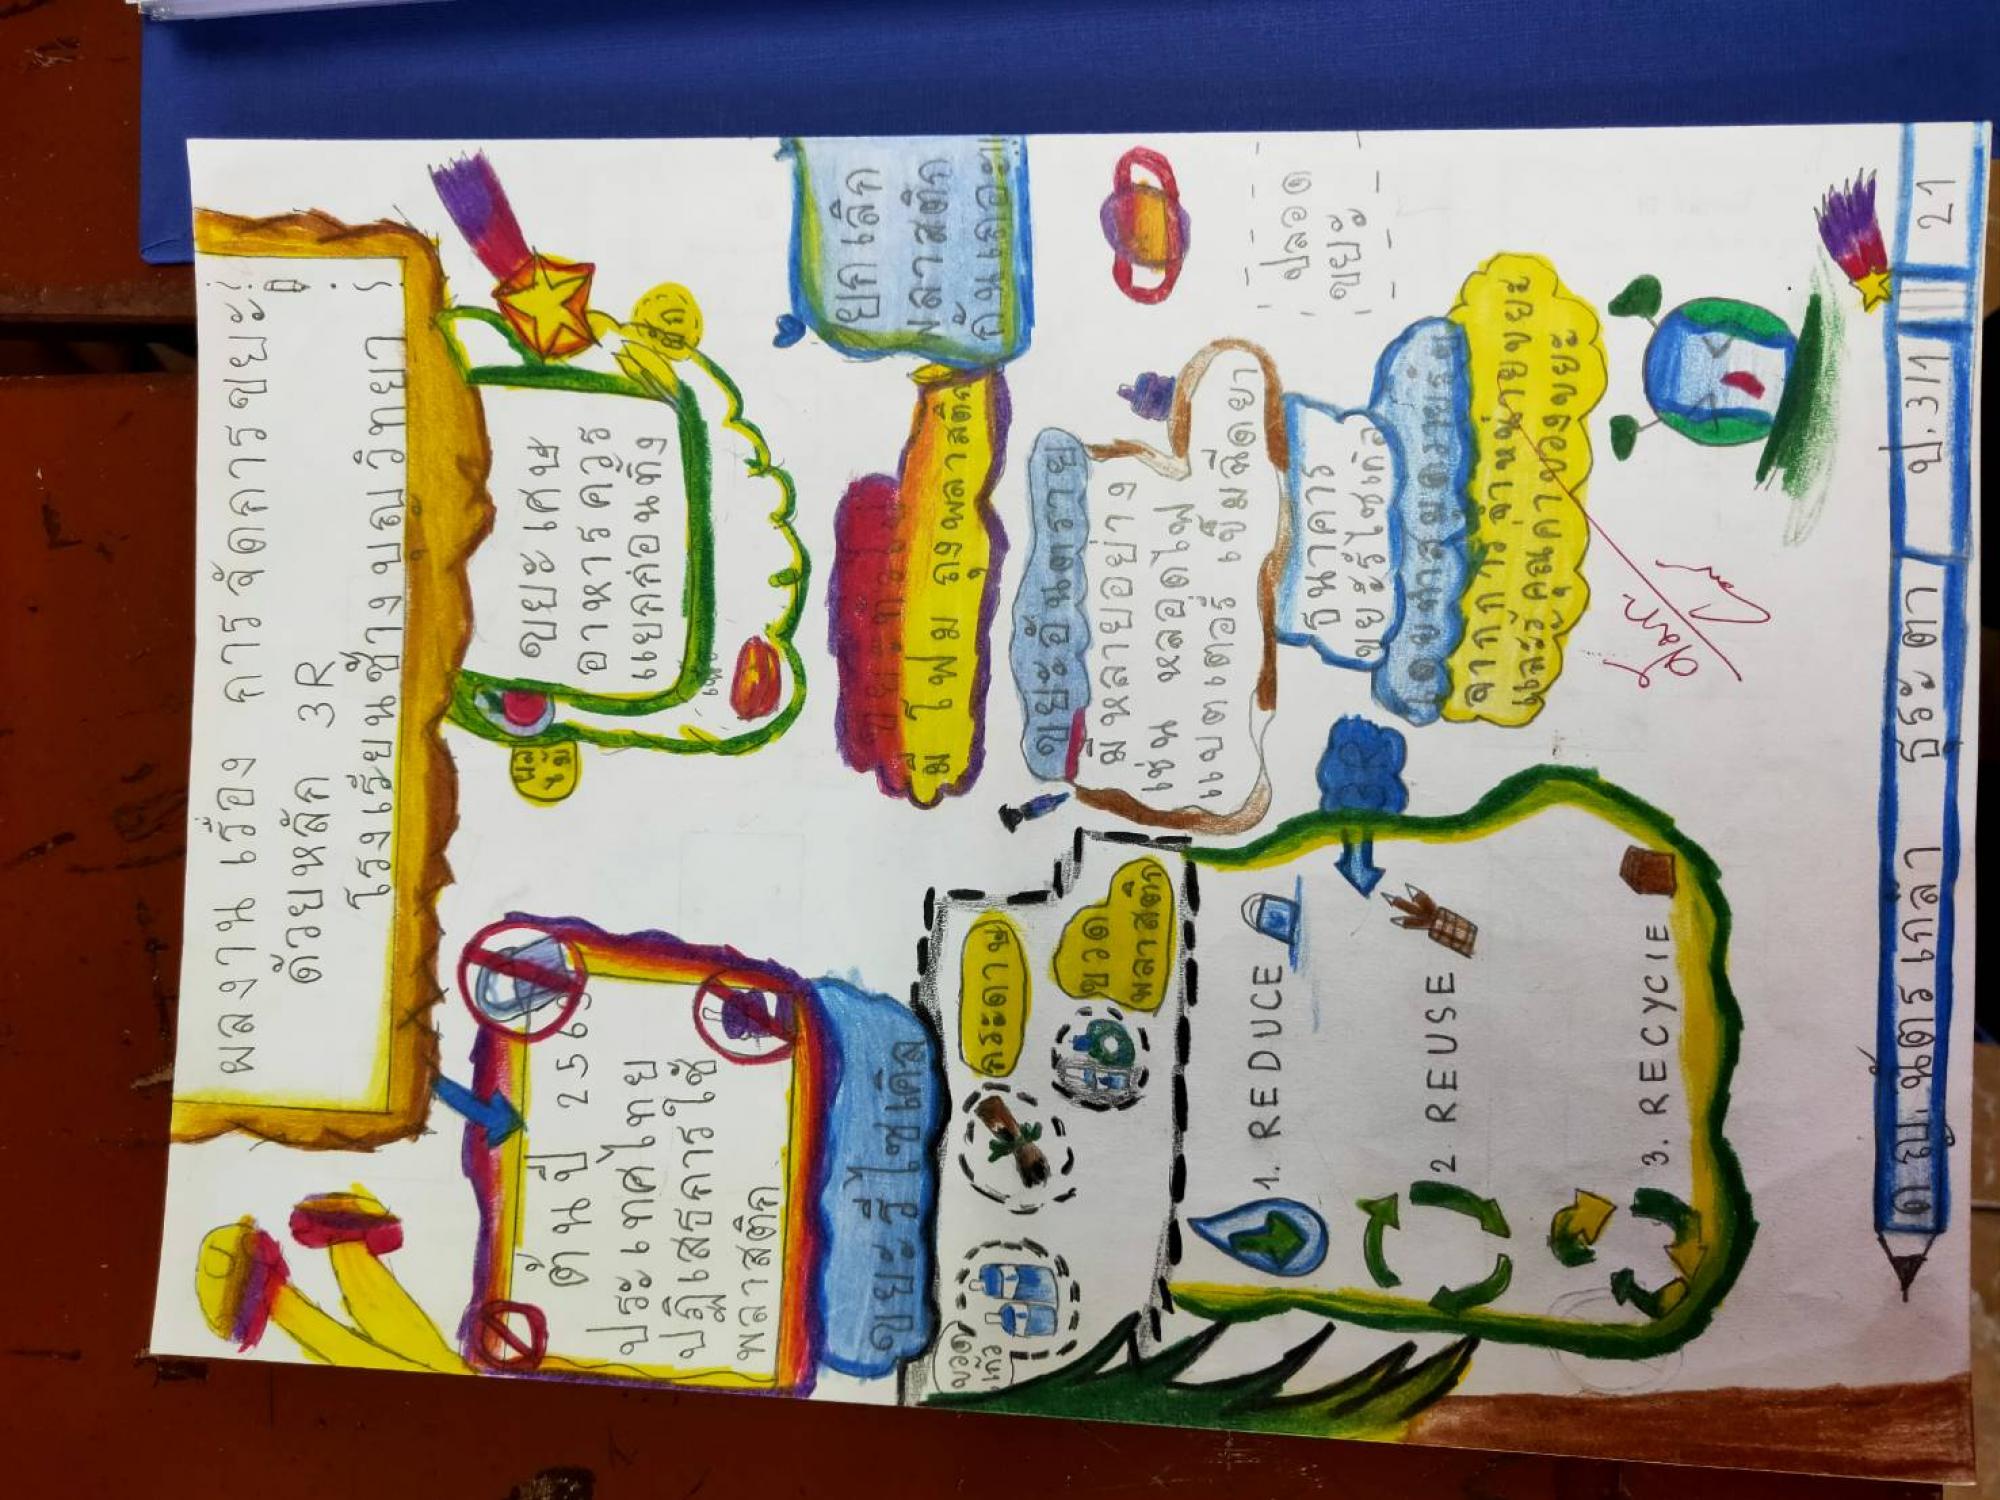 ผลงาน เรื่อง การจัดการขยะ!
ด้วยหลัก 3R
โรงเรียนช้างบุญวิทยา
ต้นปี 2563
ประเทศไทย
ปฏิเสธการใช้
พลาสติก
ผลไม้
ขยะเศษ
อาหารควร
แยกก่อนทิ้ง
ผัก
ขยะรีไซเคิล
ขวดแก้ว
กระดาษ
ขวด
พลาสติก
ขยะทั่วไป
มี โฟม ถุงพลาสติก
ยกเลิก
พลาสติก
กันเถอะ!!!
ขยะอันตราย
มีหลายอย่าง
เช่น หลอดไฟ
แบตเตอรี่ เข็มฉีดยา
ปลอด
ขยะ
ธนาคาร
ขยะรีไซเคิล
จากการจำหน่ายขยะ
และรู้คุณค่าของขยะ
3R
1. REDUCE
2. REUSE
3. RECYCIE
ด.ญ. ฉัตรเกล้า ธุระตา ป.3/1 21